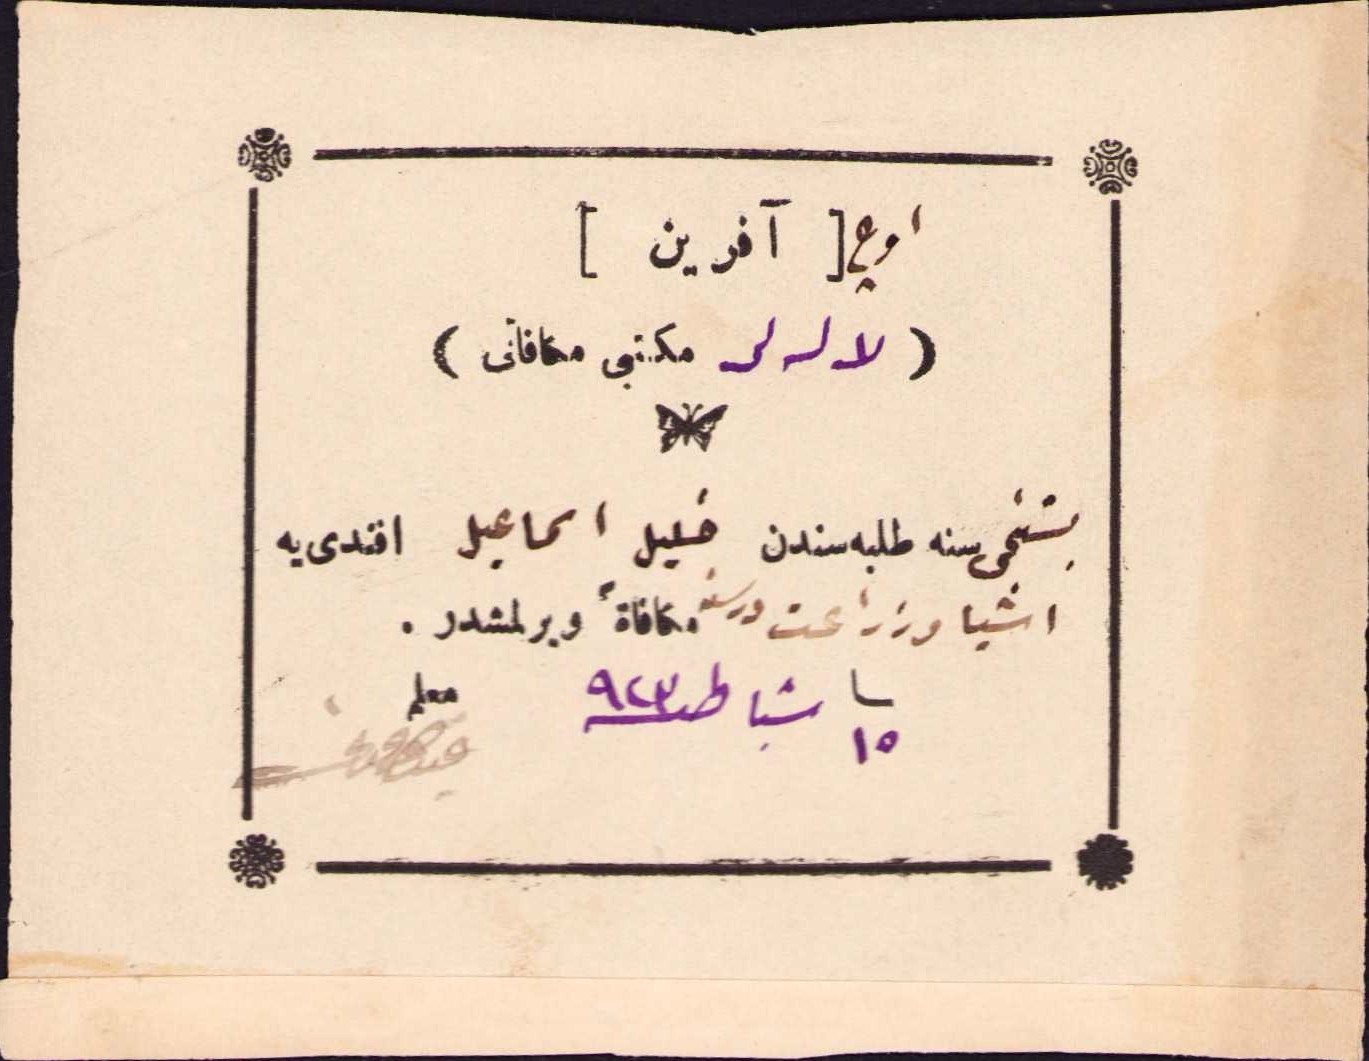 اوچ [ آفرین ]
( لاله‌لی مکتبی مکافاتی )
بشنجی سنه طلبه‌سندن خلیل اسماعیل افندی‌یه
اشیا و زراعت درسندن مکافاةً ویرلمشدر .
معلم
١٥ شباط ٩٢٣